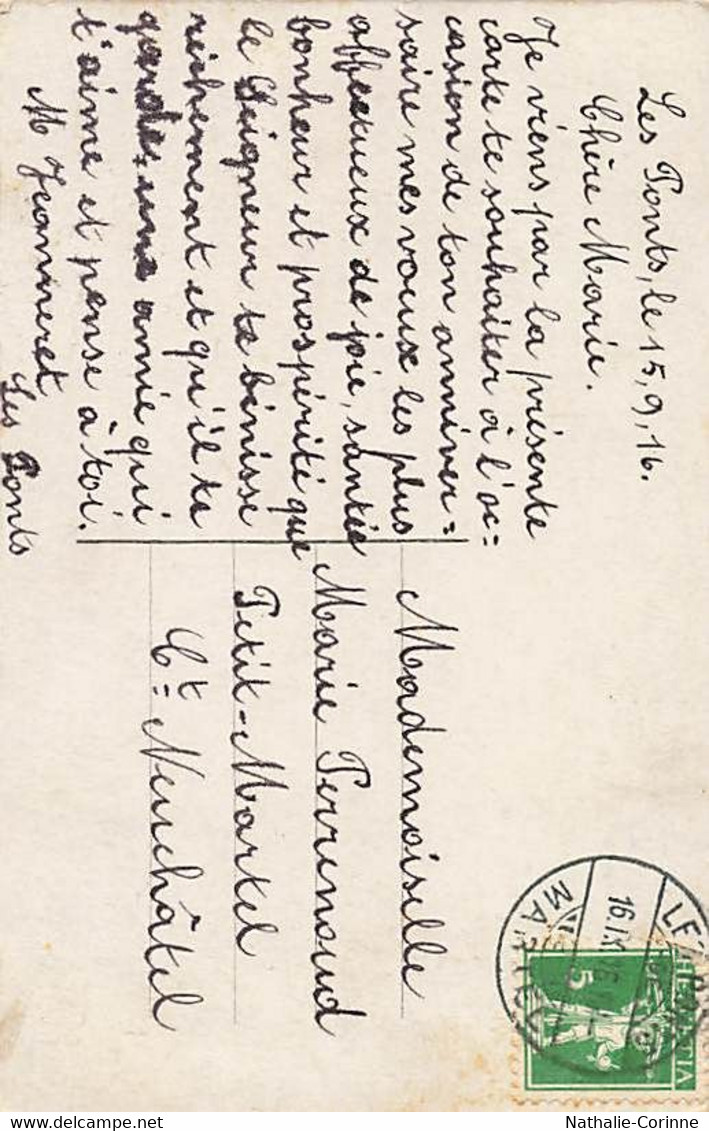 Les Ponts, le 15, 9, 16.
Chère Marie.
Je viens par la présente
carte te souhaiter à l'oc=
casion de ton anniver=
saire mes voeux les plus
affectueux de joie, santée
bonheur et prospérité que
le Seigneur te bénisse
richement et qu'il te
garde, une amie qui
t'aime et pense à toi.
M Jeanneret
Les Ponts
Mademoiselle
Marie Perrenoud
Petit-Martel
Ct= Neuchâtel
MARTEL
16.IX.16
HELVETIA
5
Nathalie-Corinne